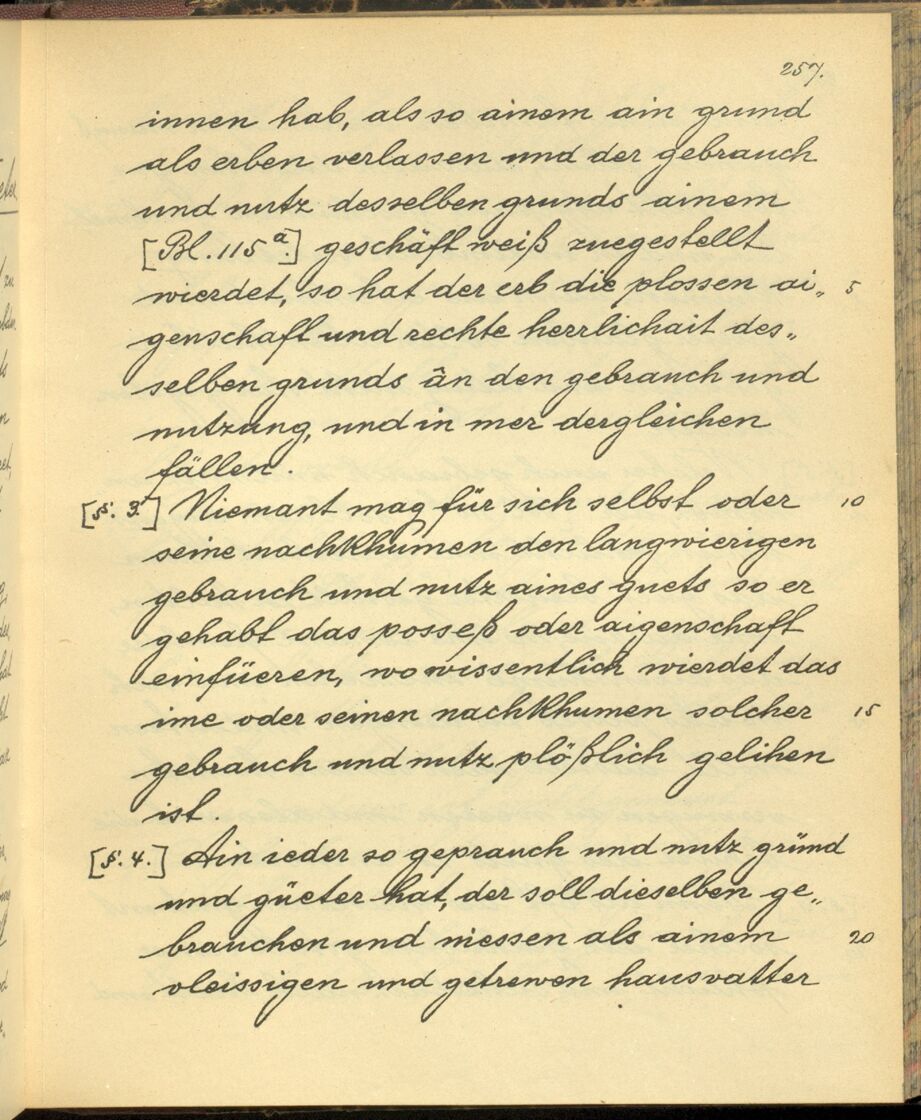 257.
innen hab, als so ainem ain grund
als erben verlassen und der gebrauch
und nutz desselben grunds ainem
[Bl. 115 a.] geschäft weiß zuegestellt
wierdet, so hat der erb die plossen ai„ 5
genschaft und rechte herrlichait des„
selben grunds ân den gebrauch und
nutzung, und in mer dergleichen
fällen.
[§. 3.] Niemant mag für sich selbst oder 10
seine nachkhumen den langwierigen
gebrauch und nutz aines guets so er
gehabt das posseß oder aigenschaft
einfüeren, wo wissentlich wierdet das
ime oder seinen nachkhumen solcher 15
gebrauch und nutz plößlich gelihen
ist.
[§. 4.] Ain ieder so geprauch und nutz gründ
und güeter hat, der soll dieselben ge„
brauchen und niessen als ainem 20
vleissigen und getrewen hausvatter